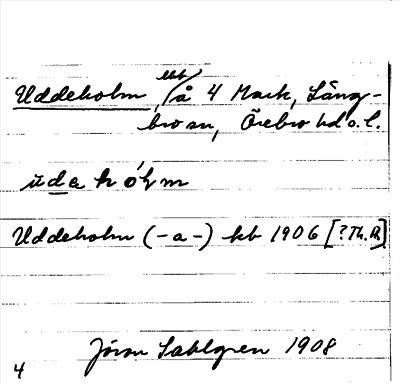 Uddeholm, utj å 4 Mark, Läng-
bro sn, Örebro hd o. l.
ùdahól̥m
Uddeholm (-a-) kb 1906 [?Th. R]
Jöran Sahlgren 1908
4